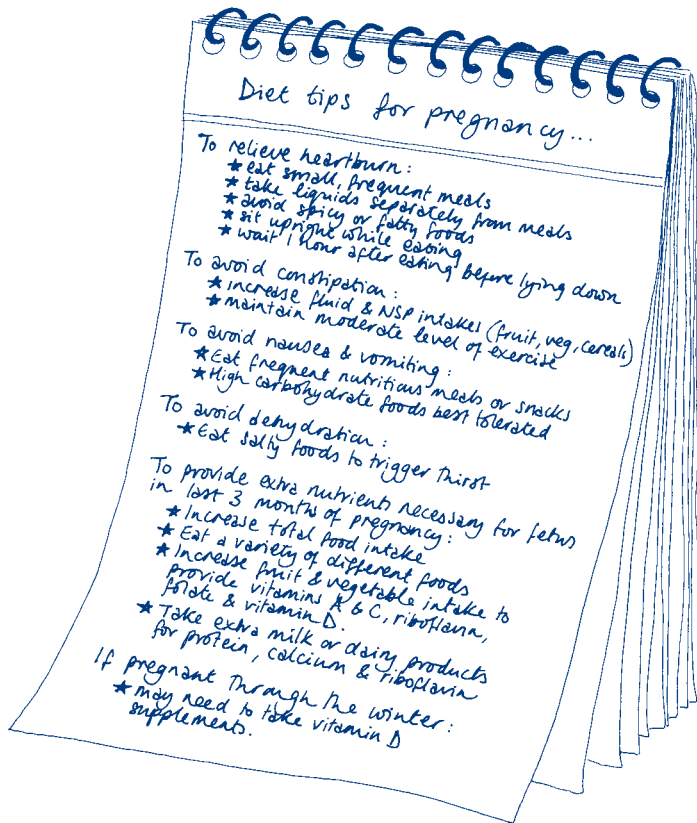 Diet tips for pregnancy...
To relieve heartburn:
★ eat small, frequent meals
★ take liquids separately from meals
★ avoid spicy or fatty foods
★ sit upright while eating
★ wait 1 hour after eating before lying down
To avoid constipation:
★ increase fluid & NSP intakes (fruit, veg, cereals)
★ maintain moderate level of exercise
To avoid nausea & vomiting:
★ Eat frequent nutritious meals or snacks
★ High carbohydrate foods best tolerated
To avoid dehydration:
★ Eat salty foods to trigger thirst
To provide extra nutrients necessary for fetus
in last 3 months of pregnancy:
★ Increase total food intake
★ Eat a variety of different foods
★ Increase fruit & vegetable intake to
provide vitamins A & C, riboflavin,
folate & vitamin D.
★ Take extra milk or dairy products
for protein, calcium & riboflavin
If pregnant through the winter:
★ may need to take vitamin D
supplements.